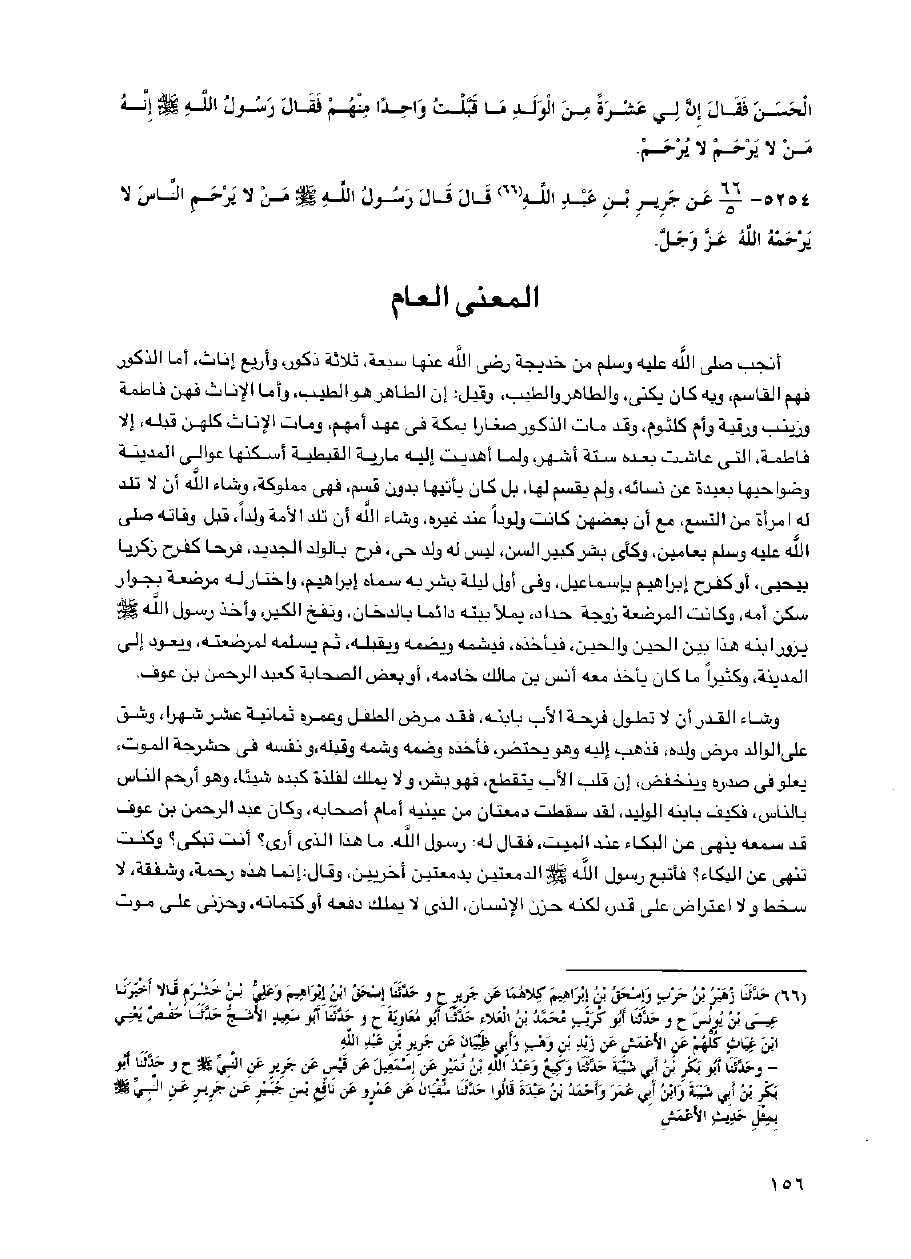 الْحَسَنَ فَقَالَ إِنَّ لِي عَشْرَةً مِنَ الْوَلَدِ مَا قَبَّلْتُ وَاحِدًا مِنْهُمْ فَقَالَ رَسُولُ اللَّهِ ﷺ إِنَّهُ
مَنْ لا يَرْحَمْ لا يُرْحَمْ.
٥٢٥٤- ٦٦/٥ عَن جَرِيرِ بْنِ عَبْدِ اللَّهِ(٦٦) قَالَ قَالَ رَسُولُ اللَّهِ ﷺ مَنْ لا يَرْحَمِ النَّاسَ لا
يَرْحَمْهُ اللَّهُ عَزَّ وَجَلَّ.
المعنى العام
أنجب صلى اللَّه عليه وسلم من خديجة رضى اللَّه عنها سبعة، ثلاثة ذكور، وأربع إناث، أما الذكور
فهم القاسم، وبه كان يكنى، والطاهر والطيب، وقيل: إن الطاهر هو الطيب، وأما الإناث فهن فاطمة
وزينب ورقية وأم كلثوم، وقد مات الذكور صغارا بمكة فى عهد أمهم، ومات الإناث كلهن قبله، إلا
فاطمة، التى عاشت بعده ستة أشهر، ولما أهديت إليه مارية القبطية أسكنها عوالى المدينة
وضواحيها بعيدة عن نسائه، ولم يقسم لها، بل كان يأتيها بدون قسم، فهى مملوكة، وشاء اللَّه أن لا تلد
له امرأة من التسع، مع أن بعضهن كانت ولوداً عند غيره، وشاء اللَّه أن تلد الأمة ولداً، قبل وفاته صلى
اللَّه عليه وسلم بعامين، وكأى بشر كبير السن، ليس له ولد حى، فرح بالولد الجديد، فرحا كفرح زكريا
بيحيى، أو كفرح إبراهيم بإسماعيل، وفى أول ليلة بشر به سماه إبراهيم، واختار له مرضعة بجوار
سكن أمه، وكانت المرضعة زوجة حداد، يملأ بيته دائما بالدخان، ونفخ الكير، وأخذ رسول اللَّه ﷺ
يزور ابنه هذا بين الحين والحين، فيأخذه، فيشمه ويضمه ويقبله، ثم يسلمه لمرضعته، ويعود إلى
المدينة، وكثيراً ما كان يأخذ معه أنس بن مالك خادمه، أو بعض الصحابة كعبد الرحمن بن عوف.
وشاء القدر أن لا تطول فرحة الأب بابنه، فقد مرض الطفل وعمره ثمانية عشر شهرا، وشق
على الوالد مرض ولده، فذهب إليه وهو يحتضر، فأخذه وضمه وشمه وقبله، و نفسه فى حشرجة الموت،
يعلو فى صدره وينخفض، إن قلب الأب يتقطع، فهو بشر، و لا يملك لفلذة كبده شيئا، وهو أرحم الناس
بالناس، فكيف بابنه الوليد، لقد سقطت دمعتان من عينيه أمام أصحابه، وكان عبد الرحمن بن عوف
قد سمعه ينهى عن البكاء عند الميت، فقال له: رسول اللَّه. ما هذا الذى أرى؟ أنت تبكى؟ وكنت
تنهى عن البكاء؟ فأتبع رسول اللَّه ﷺ الدمعتين بدمعتين أخريين، وقال: إنما هذه رحمة، وشفقة، لا
سخط و لا اعتراض على قدر، لكنه حزن الإنسان، الذى لا يملك دفعه أو كتمانه، وحزنى على موت
(٦٦) حَدَّثَنَا زُهَيْرُ بْنُ حَرْبٍ وَإِسْحَقُ بْنُ إِبْرَاهِيمَ كِلاهُمَا عَن جَرِيرٍ ح و حَدَّثَنَا إِسْحَقُ ابْنُ إِبْرَاهِيمَ وَعَلِيُّ بْنُ خَشْرَمٍ قَالا أَخْبَرَنَا
عِيسَى بْنُ يُونُسَ ح و حَدَّثَنَا أَبُو كُرَيْبٍ مُحَمَّدُ بْنُ الْعَلاءِ حَدَّثَنَا أَبُو مُعَاوِيَةَ ح و حَدَّثَنَا أَبُو سَعِيدٍ الأَشَجُّ حَدَّثَنَا حَفْصٌ يَعْنِي
ابْنَ غِيَاثٍ كُلُّهُمْ عَنِ الأَعْمَشِ عَن زَيْدِ بْنِ وَهْبٍ وَأَبِي ظِبْيَانَ عَن جَرِيرِ بْنِ عَبْدِ اللَّهِ
- وحَدَّثَنَا أَبُو بَكْرِ بْنُ أَبِي شَيْبَةَ حَدَّثَنَا وَكِيعٌ وَعَبْدُ اللَّهِ بْنُ نُمَيْرٍ عَن إِسْمَعِيلَ عَن قَيْسٍ عَن جَرِيرٍ عَنِ النَّبِيِّ ﷺ ح و حَدَّثَنَا أَبُو
بَكْرِ بْنُ أَبِي شَيْبَةَ وَابْنُ أَبِي عُمَرَ وَأَحْمَدُ بْنُ عَبْدَةَ قَالُوا حَدَّثَنَا سُفْيَانُ عَن عَمْرٍو عَن نَافِعِ بْنِ جُبَيْرٍ عَن جَرِيرٍ عَنِ النَّبِيِّ ﷺ
بِمِثْلِ حَدِيثِ الأَعْمَشِ
١٥٦